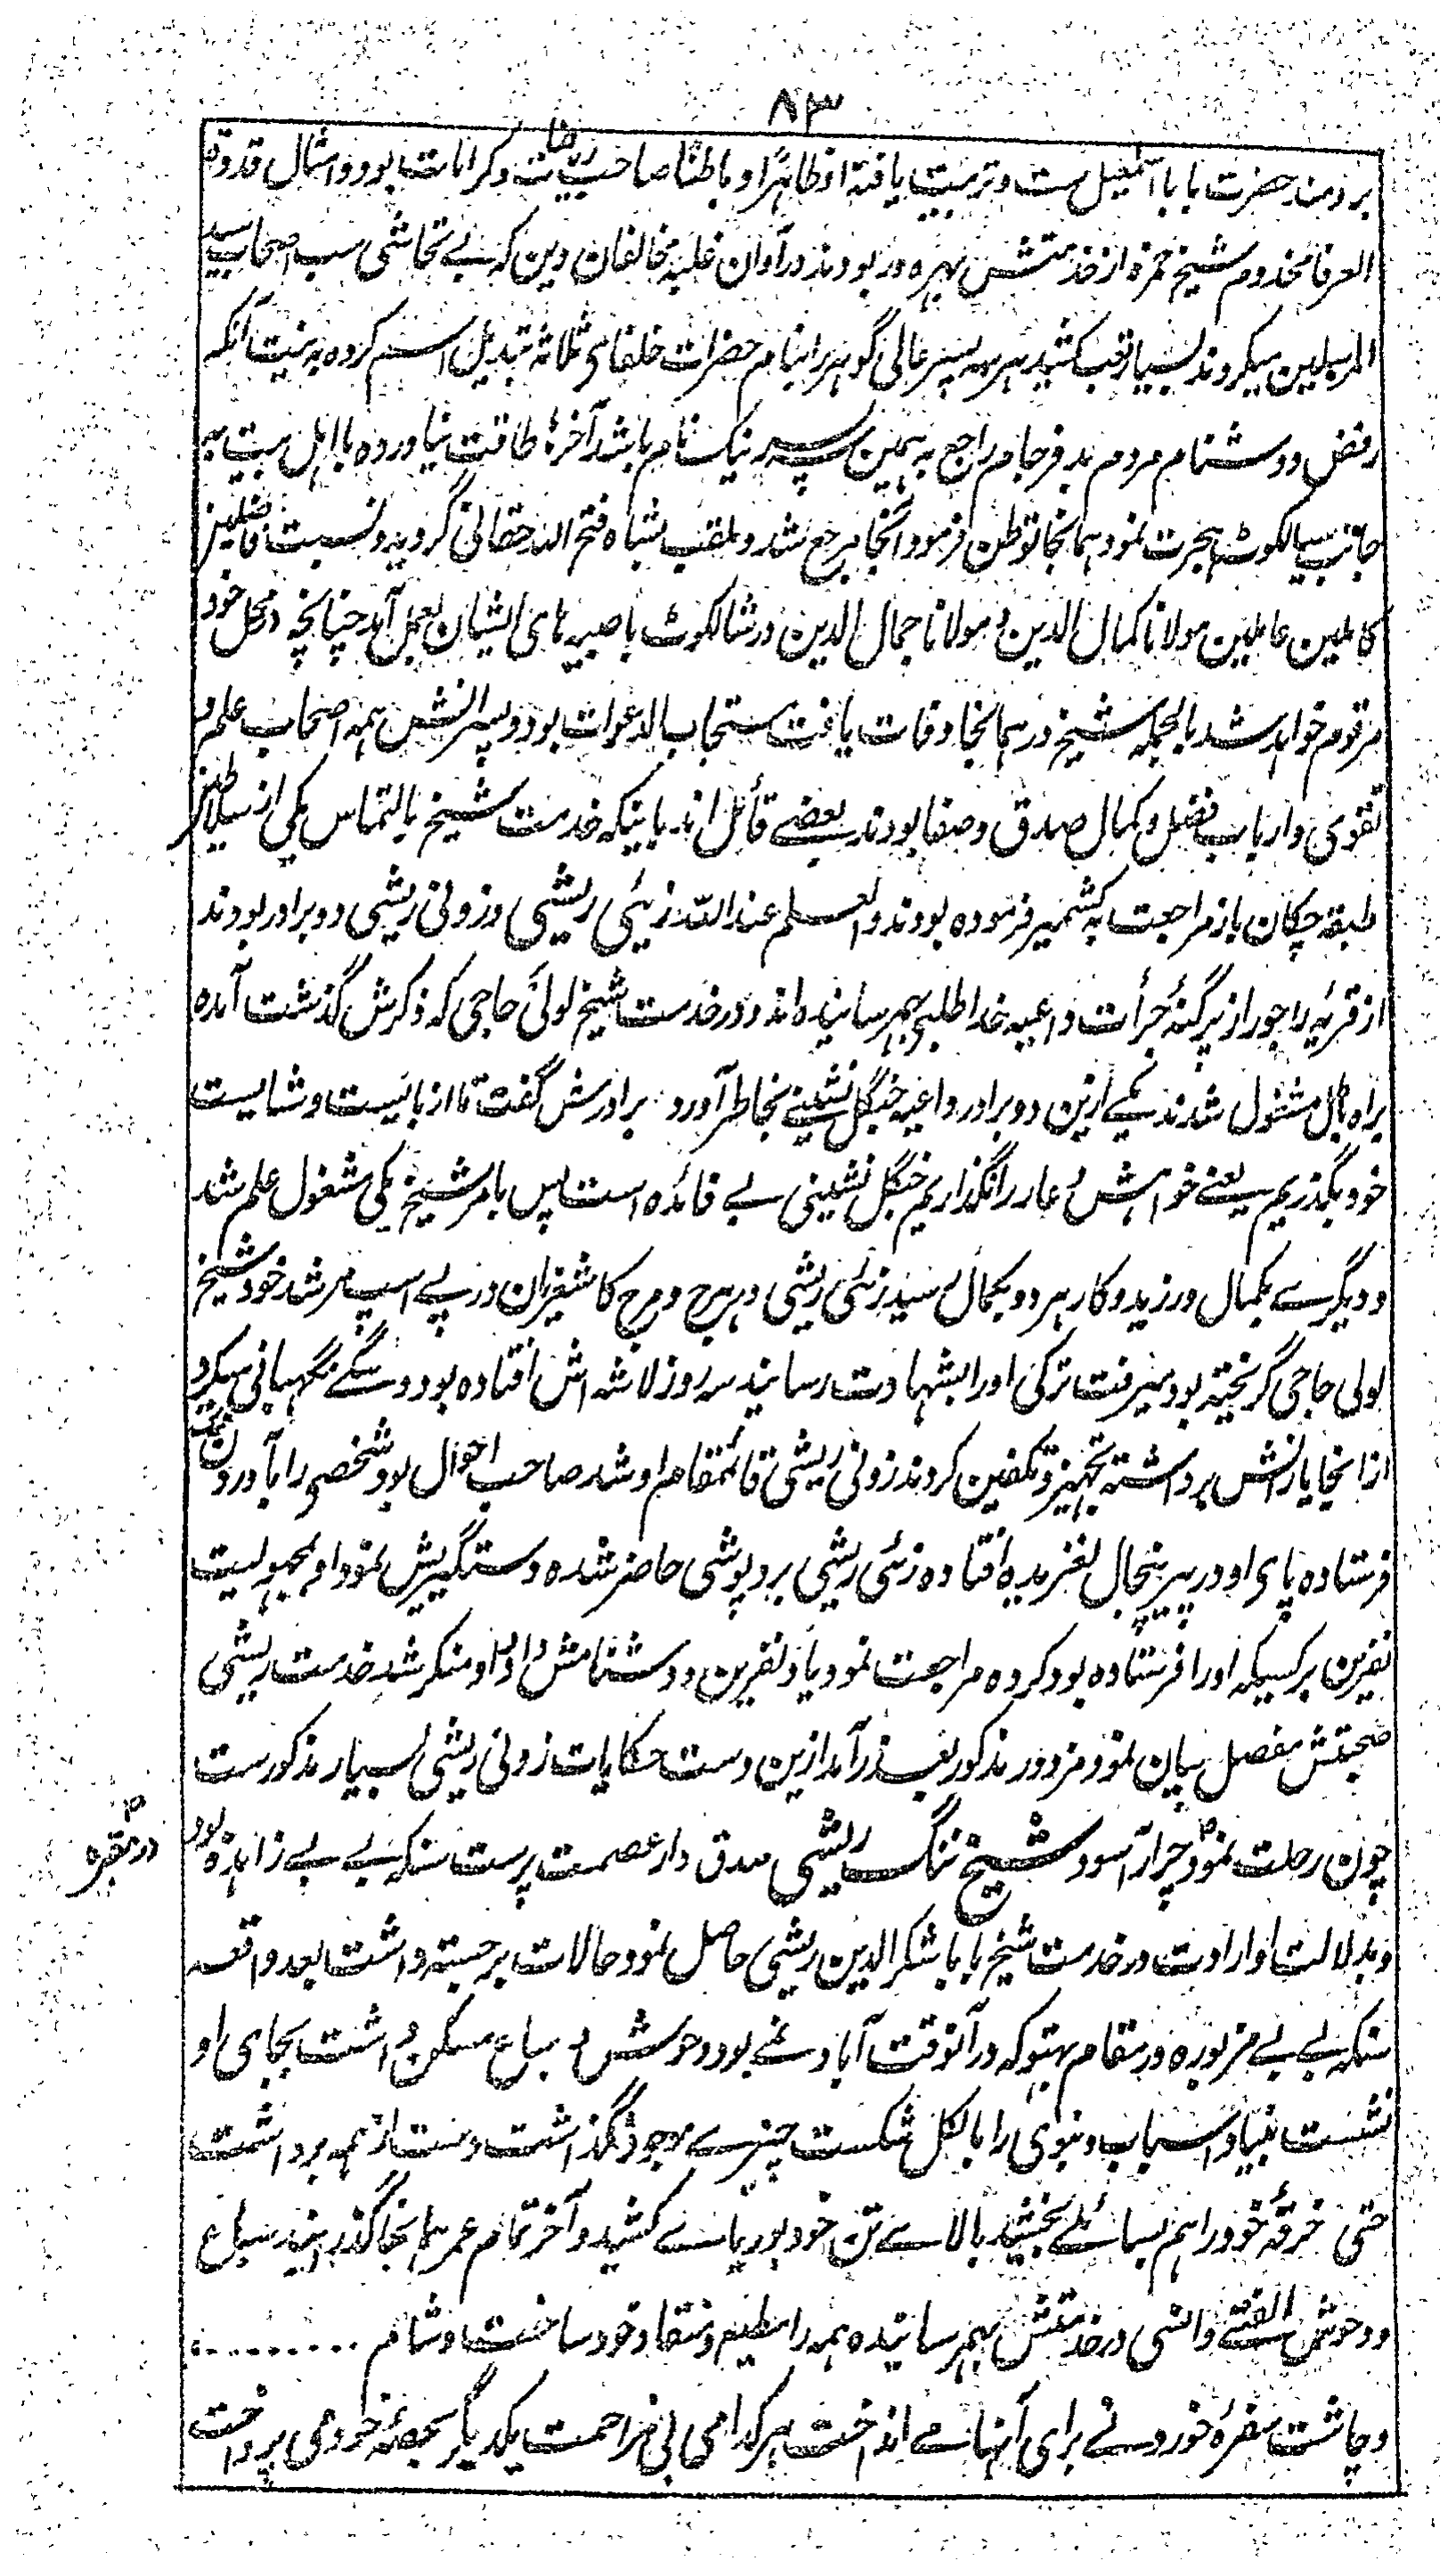 ۸۳
بردمند حضرت بابا اسمٰعیل ست و تربیت یافتهٔ او ظاهرًا و باطنًا صاحب ریاضات و کرامات بود و امثال قدوة
العرفا مخدوم شیخ حمزه از خدمتش بهره ور بودند در آوان غلبه مخالفان دین که بے تحاشی سب اصحاب سید
المرسلین میکردند بسیار تعب کشید هر سه پسر عالی گوهر را بنام حضرات خلفای ثلاثه تبدیل اسم کرده به نیت آنکه
رفض و دشنام مردم بدفرجام راجع به همین سه پسر نیکنام باشد آخر طاقت نیاورده با اهل بیت به
جانب سیالکوٹ هجرت نمود همانجا توطن فرمود و آنجا مرجع شد و ملقب بشاه فتح الله حقانی گردید و نسبت فاضلین
کاملین عاملین مولانا کمال الدین و مولانا جمال الدین در شالکوٹ با صبیه های ایشان بعمل آمد چنانچه در محل خود
مرقوم خواهد شد بالجمله شیخ در همانجا وفات یافت مستجاب الدعوات بود و پسرانش همه اصحاب علم و
تقوی و ارباب فضل و کمال صدق و صفا بودند بعضے قائل اند باینکه خدمت شیخ بالتماس یکی از سلاطین
طبقه چکان باز مراجعت به کشمیر فرموده بودند والعلم عند الله زئی ریشی و زونی ریشی دو برادر بودند
از قریه راجور از پرگنهٔ جرأت داعیه خدا طلبی بهم رسانیده اند و در خدمت شیخ لولی حاجی که ذکرش گذشت آمده
براه کمال مشغول شدند یکے ازین دو برادر داعیه جنگل نشینے بخاطر آورد برادرش گفت تا از بایست و شایست
خود بگذریم یعنے خواهش و عار را نگذاریم جنگل نشینی بے فائده است پس بامر شیخ یکی مشغول علم شد
و دیگرے بکمال ورزید و کار هر دو بکمال رسید زئی ریشی در هرج و مرج کاشغریان در پے اسپ مرشد خود شیخ
لولی حاجی گریخته بود میرفت ترکی او را بشهادت رسانید سه روز لاشه اش افتاده بود و سگے نگهبانی میکرد
از انجا یارانش برداشته تجهیز و تکفین کردند زونی ریشی قائمقام او شد صاحب احوال بود شخصی را بآوردن نمک
فرستاده پای او در پیر پنجال لغزیده افتاده زئی ریشی برد پوشی حاضر شده دستگیریش نمود او بمجبولیت
نفرین بر کسیکه او را فرستاده بود کرده مراجعت نمود یاد نفرین و دشنامش داد او منکر شد خدمت ریشی
صحبتش مفصل بیان نمود مزدور مذکور بعذر درآمد ازین دست حکایات زونی ریشی بسیار مذکورست
چون رحلت نمود در مقبره چرار آسود شیخ ننگ ریشی صدق دار عصمت پرست سنکه بے بے زاهده بود
و بدلالت او ارادت در خدمت شیخ بابا شکر الدین ریشی حاصل نمود حالات برجسته داشت بعد واقعه
سنکه بے بے مزبوره در مقام بهتو که در آنوقت آباد نمے بود وحوش و سباع مسکن داشت بجای او
نشست بنیاد اسباب دنیوی را بالکل شکست چیزے موجود نگذاشت دست از همه برداشت
حتی خرقهٔ خود را هم بسائلے بخشید بالاے تن خود بوریاے کشید و آخر تمام عمر همانجا گذرانید سباع
و وحوش الفتے و انسی در خدمتش بهم رسانیده همه را مطیع و منقاد خود ساخت و شام .........
و چاشت سفرهٔ خوردنے برای آنهامے انداخت هر کدامی بی مزاحمت یکدیگر بحصهٔ خود می پرداخت